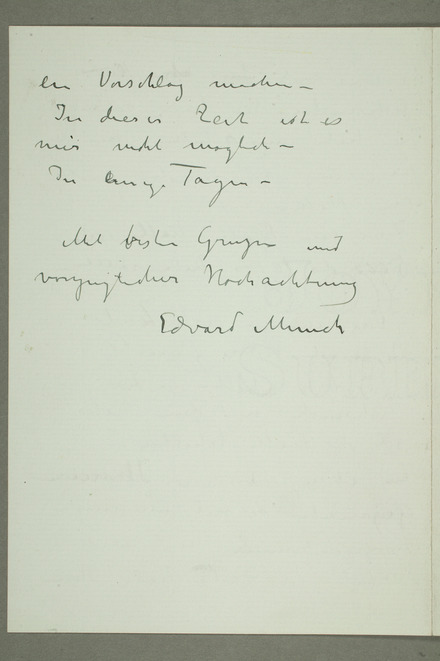 ein Vorschlag machen –
In dieser Zeit ist es
mir nicht möglich –
In einige Tagen –
Mit besten Grüssen und
vorzüglicher Hochachtung
Edvard Munch